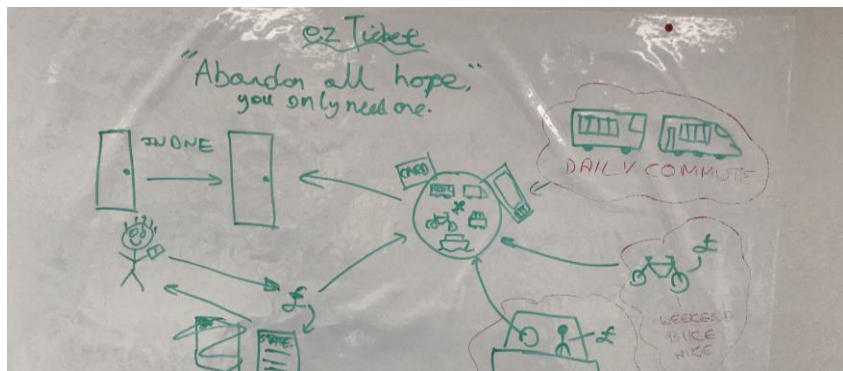 ez Ticket
"Abandon all hope,"
you only need one.
IN ONE
CARD
DAILY COMMUTS
£
£
£
WEEKEND
BIKE
HIKE
STATE.